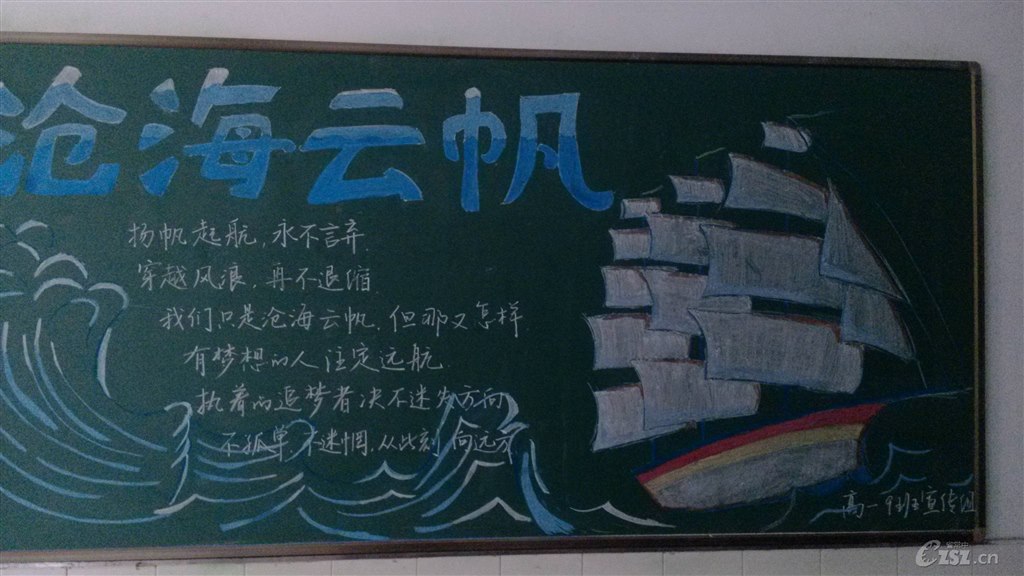 沧海云帆
扬帆起航,永不言弃.
穿越风浪,再不退缩.
我们只是沧海云帆,但那又怎样
有梦想的人注定远航
执着的追梦者决不迷失方向
不孤单 不迷惘,从此刻 向远方
高一9班宣传组
CZSZ.cn